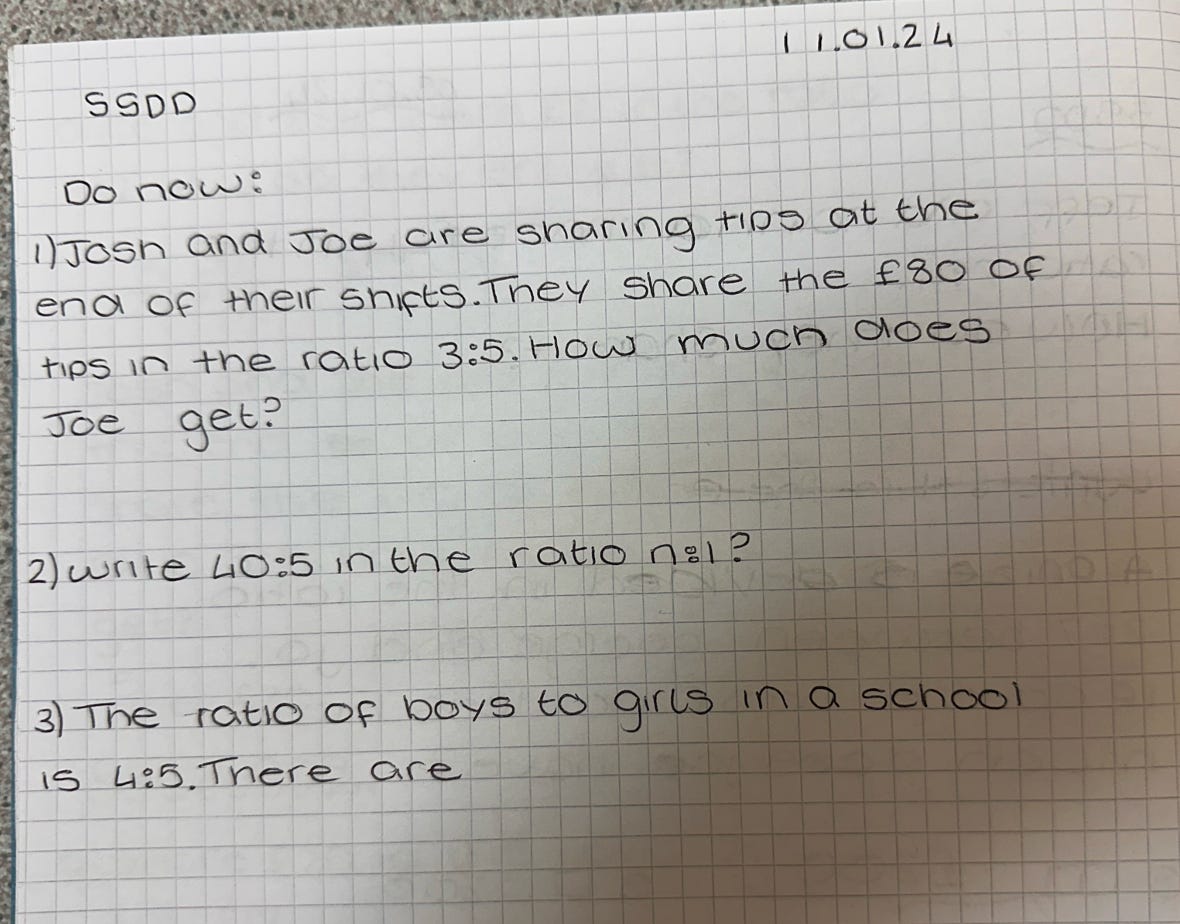 11.01.24
SSDD
Do now:
1) Josh and Joe are sharing tips at the
end of their shifts. They share the £80 of
tips in the ratio 3:5. How much does
Joe get?
2) write 40:5 in the ratio n:1?
3) The ratio of boys to girls in a school
is 4:5. There are